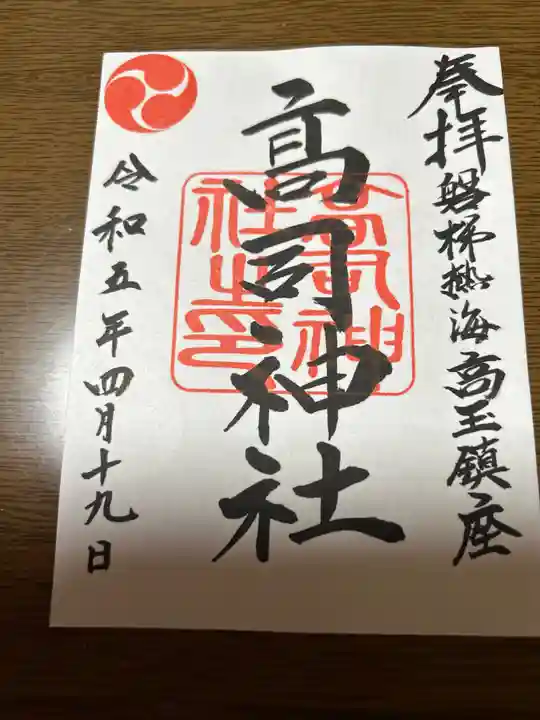 奉拝 磐梯熱海高玉鎮座
高司神社
高司神社之印
令和五年四月十九日